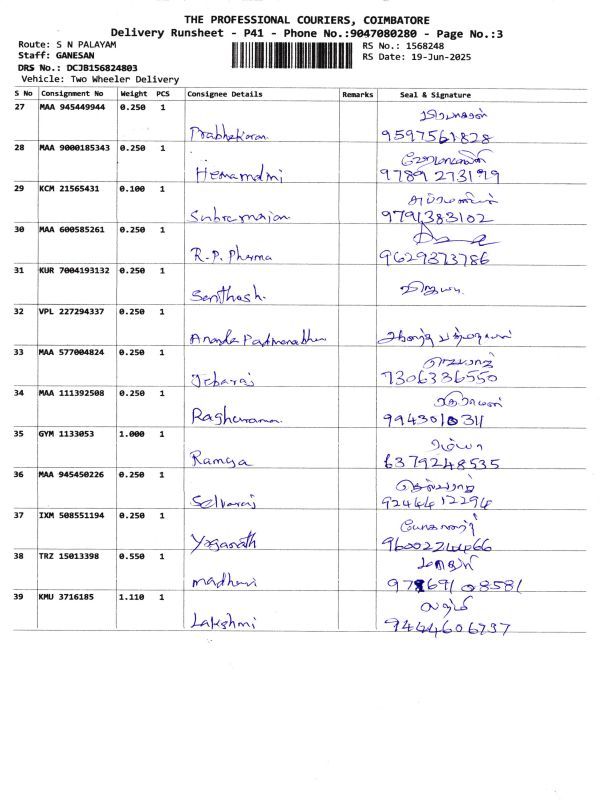 THE PROFESSIONAL COURIERS, COIMBATORE
Delivery Runsheet - P41 - Phone No.:9047080280 - Page No.:3
Route: S N PALAYAM RS No.: 1568248
Staff: GANESAN RS Date: 19-Jun-2025
DRS No.: DCJB156824803
Vehicle: Two Wheeler Delivery
S No Consignment No Weight PCS Consignee Details Remarks Seal & Signature
27 MAA 945449944 0.250 1
Prabhakaran 9597561828
28 MAA 9000185343 0.250 1
Hemamalni
29 KCM 21565431 0.100 1
Subramanian 9791383102
30 MAA 600585261 0.250 1
R.P. Pharma 9629373786
31 KUR 7004193132 0.250 1
Santhosh.
32 VPL 227294337 0.250 1
Ananda Padmanabhan
33 MAA 577004824 0.250 1
Jebaraj 7306336550
34 MAA 111392508 0.250 1
Raghuraman 9943010311
35 GYM 1133053 1.000 1 ரம்யா
Ramya 6379248535
36 MAA 945450226 0.250 1 செல்வராஜ்
Selvaraj 9244412294
37 IXM 508551194 0.250 1
Yoganath 9600224466
38 TRZ 15013398 0.550 1
madhavi
39 KMU 3716185 1.110 1
Lakshmi 9444606737